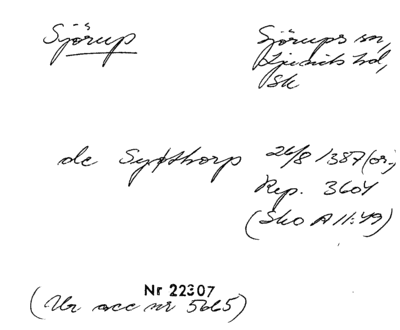 Sjörup Sjörups sn,
Ljunits hd,
Sk
de Syxthorp 26/8 1387 (or.)
Rep. 3604
(Sko A 11:49)
Nr 22307
(Ur acc nr 5665)